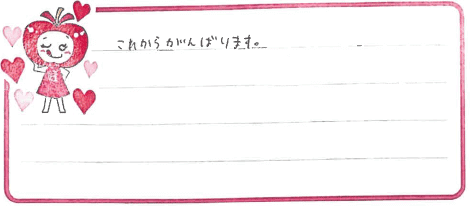 これからがんばります。